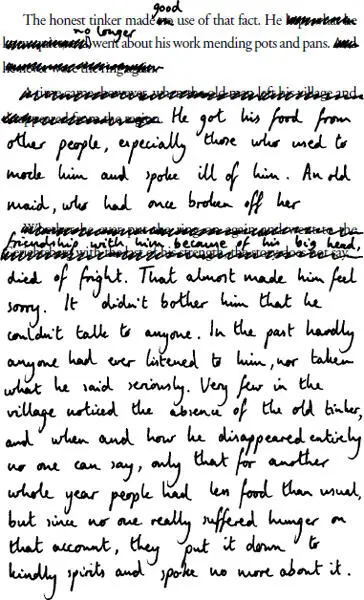 good
The honest tinker made no use of that fact. He
no longer
went about his work mending pots and pans.
He got his food from
other people, especially those who used to
mode him and spoke ill of him. An old
maid, who had once broken off her
friendship with him because of his big head,
died of fright. That almost made him feel
sorry. It didn't bother him that he
couldn't talk to anyone. In the past hardly
anyone had ever listened to him, nor taken
what he said seriously. Very few in the
village noticed the absence of the old tinker,
and when and how he disappeared entirely
no one can say, only that for another
whole year people had less food than usual,
but since no one really suffered hunger on
that account, they put it down to
kindly spirits and spoke no more about it.